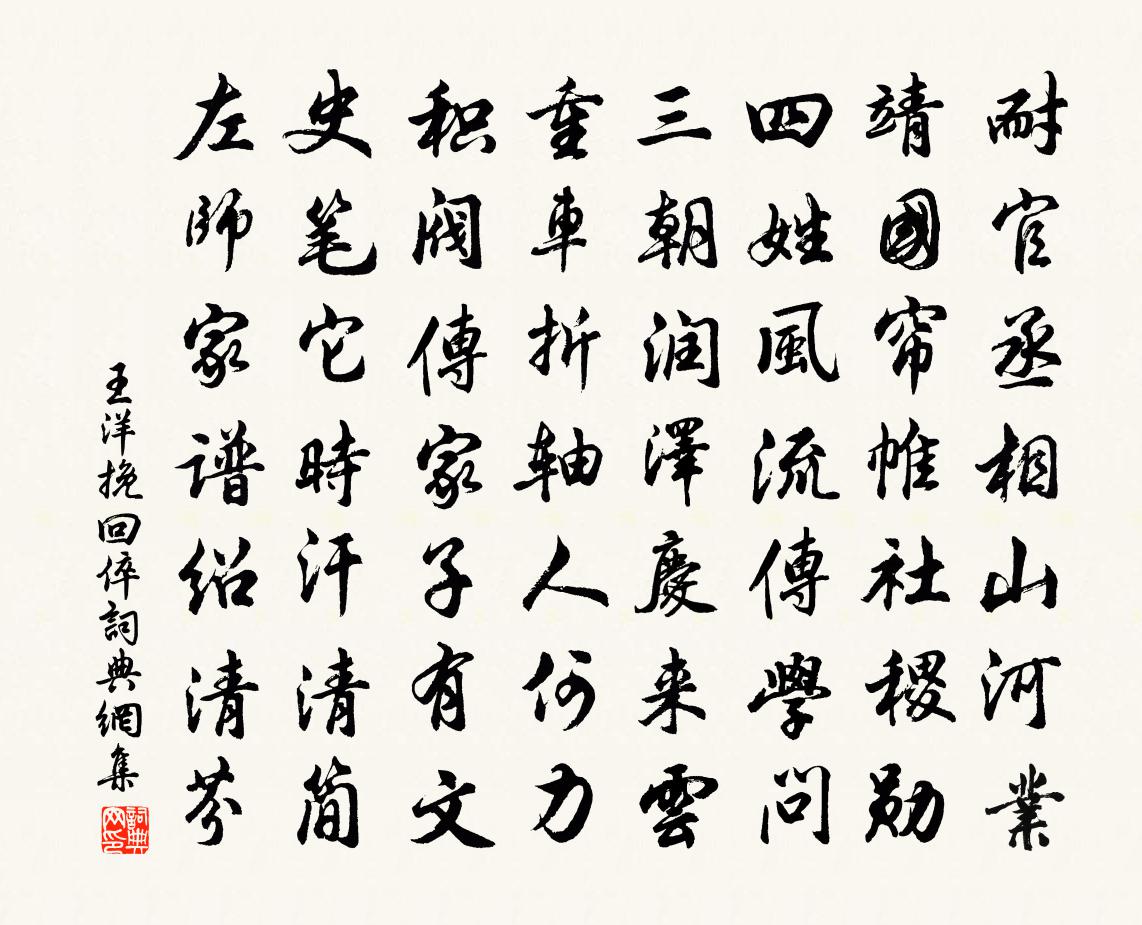 耐官丞相山河業
靖國帘帷社稷勋
四姓風流傳學問
三朝润澤慶来雲
重車折軸人何力
积阀傳家子有文
史笔它時汗清簡
左師家谱绍清芬
王洋挽回倅詞典網集
詞典网印